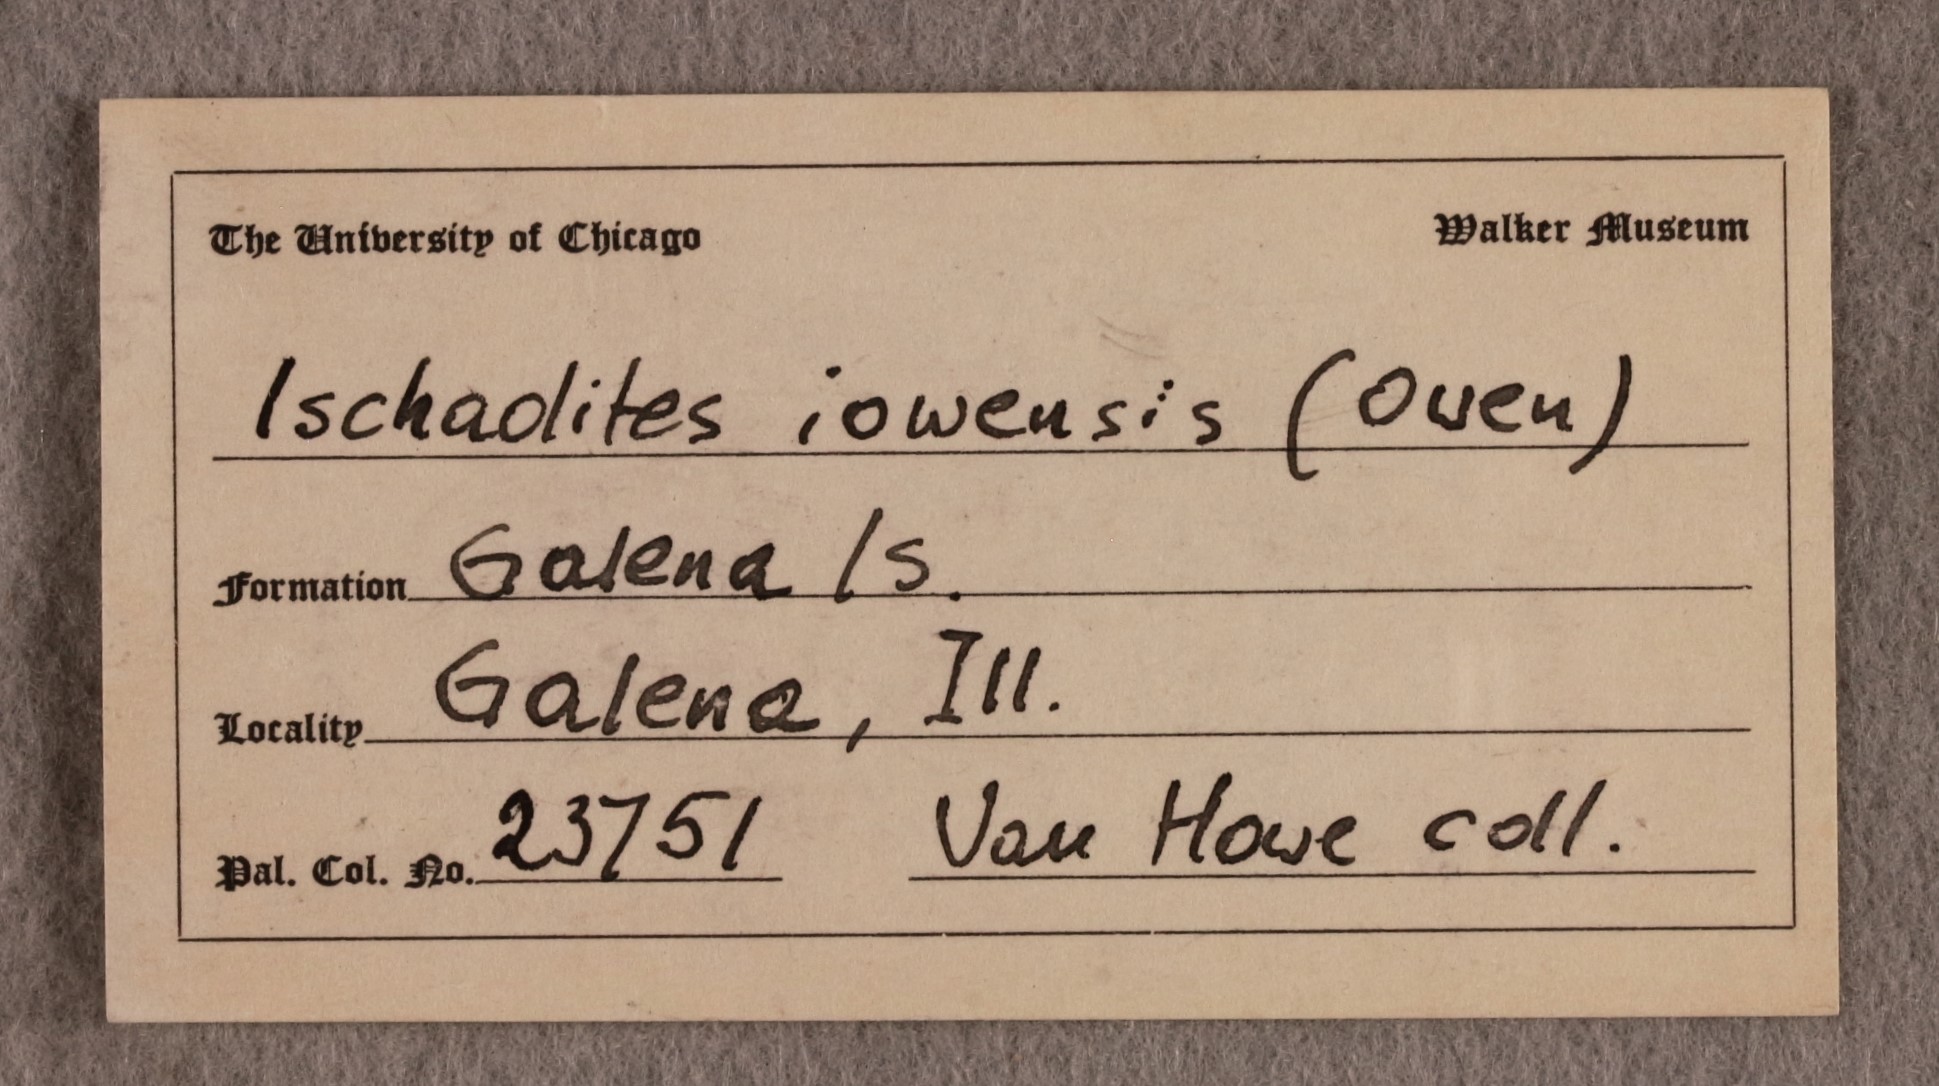 The University of Chicago Walker Museum
Ischadites iowensis (Owen)
Formation Galena ls.
Locality Galena, Ill.
Pal. Col. No. 23751 Van Horne coll.